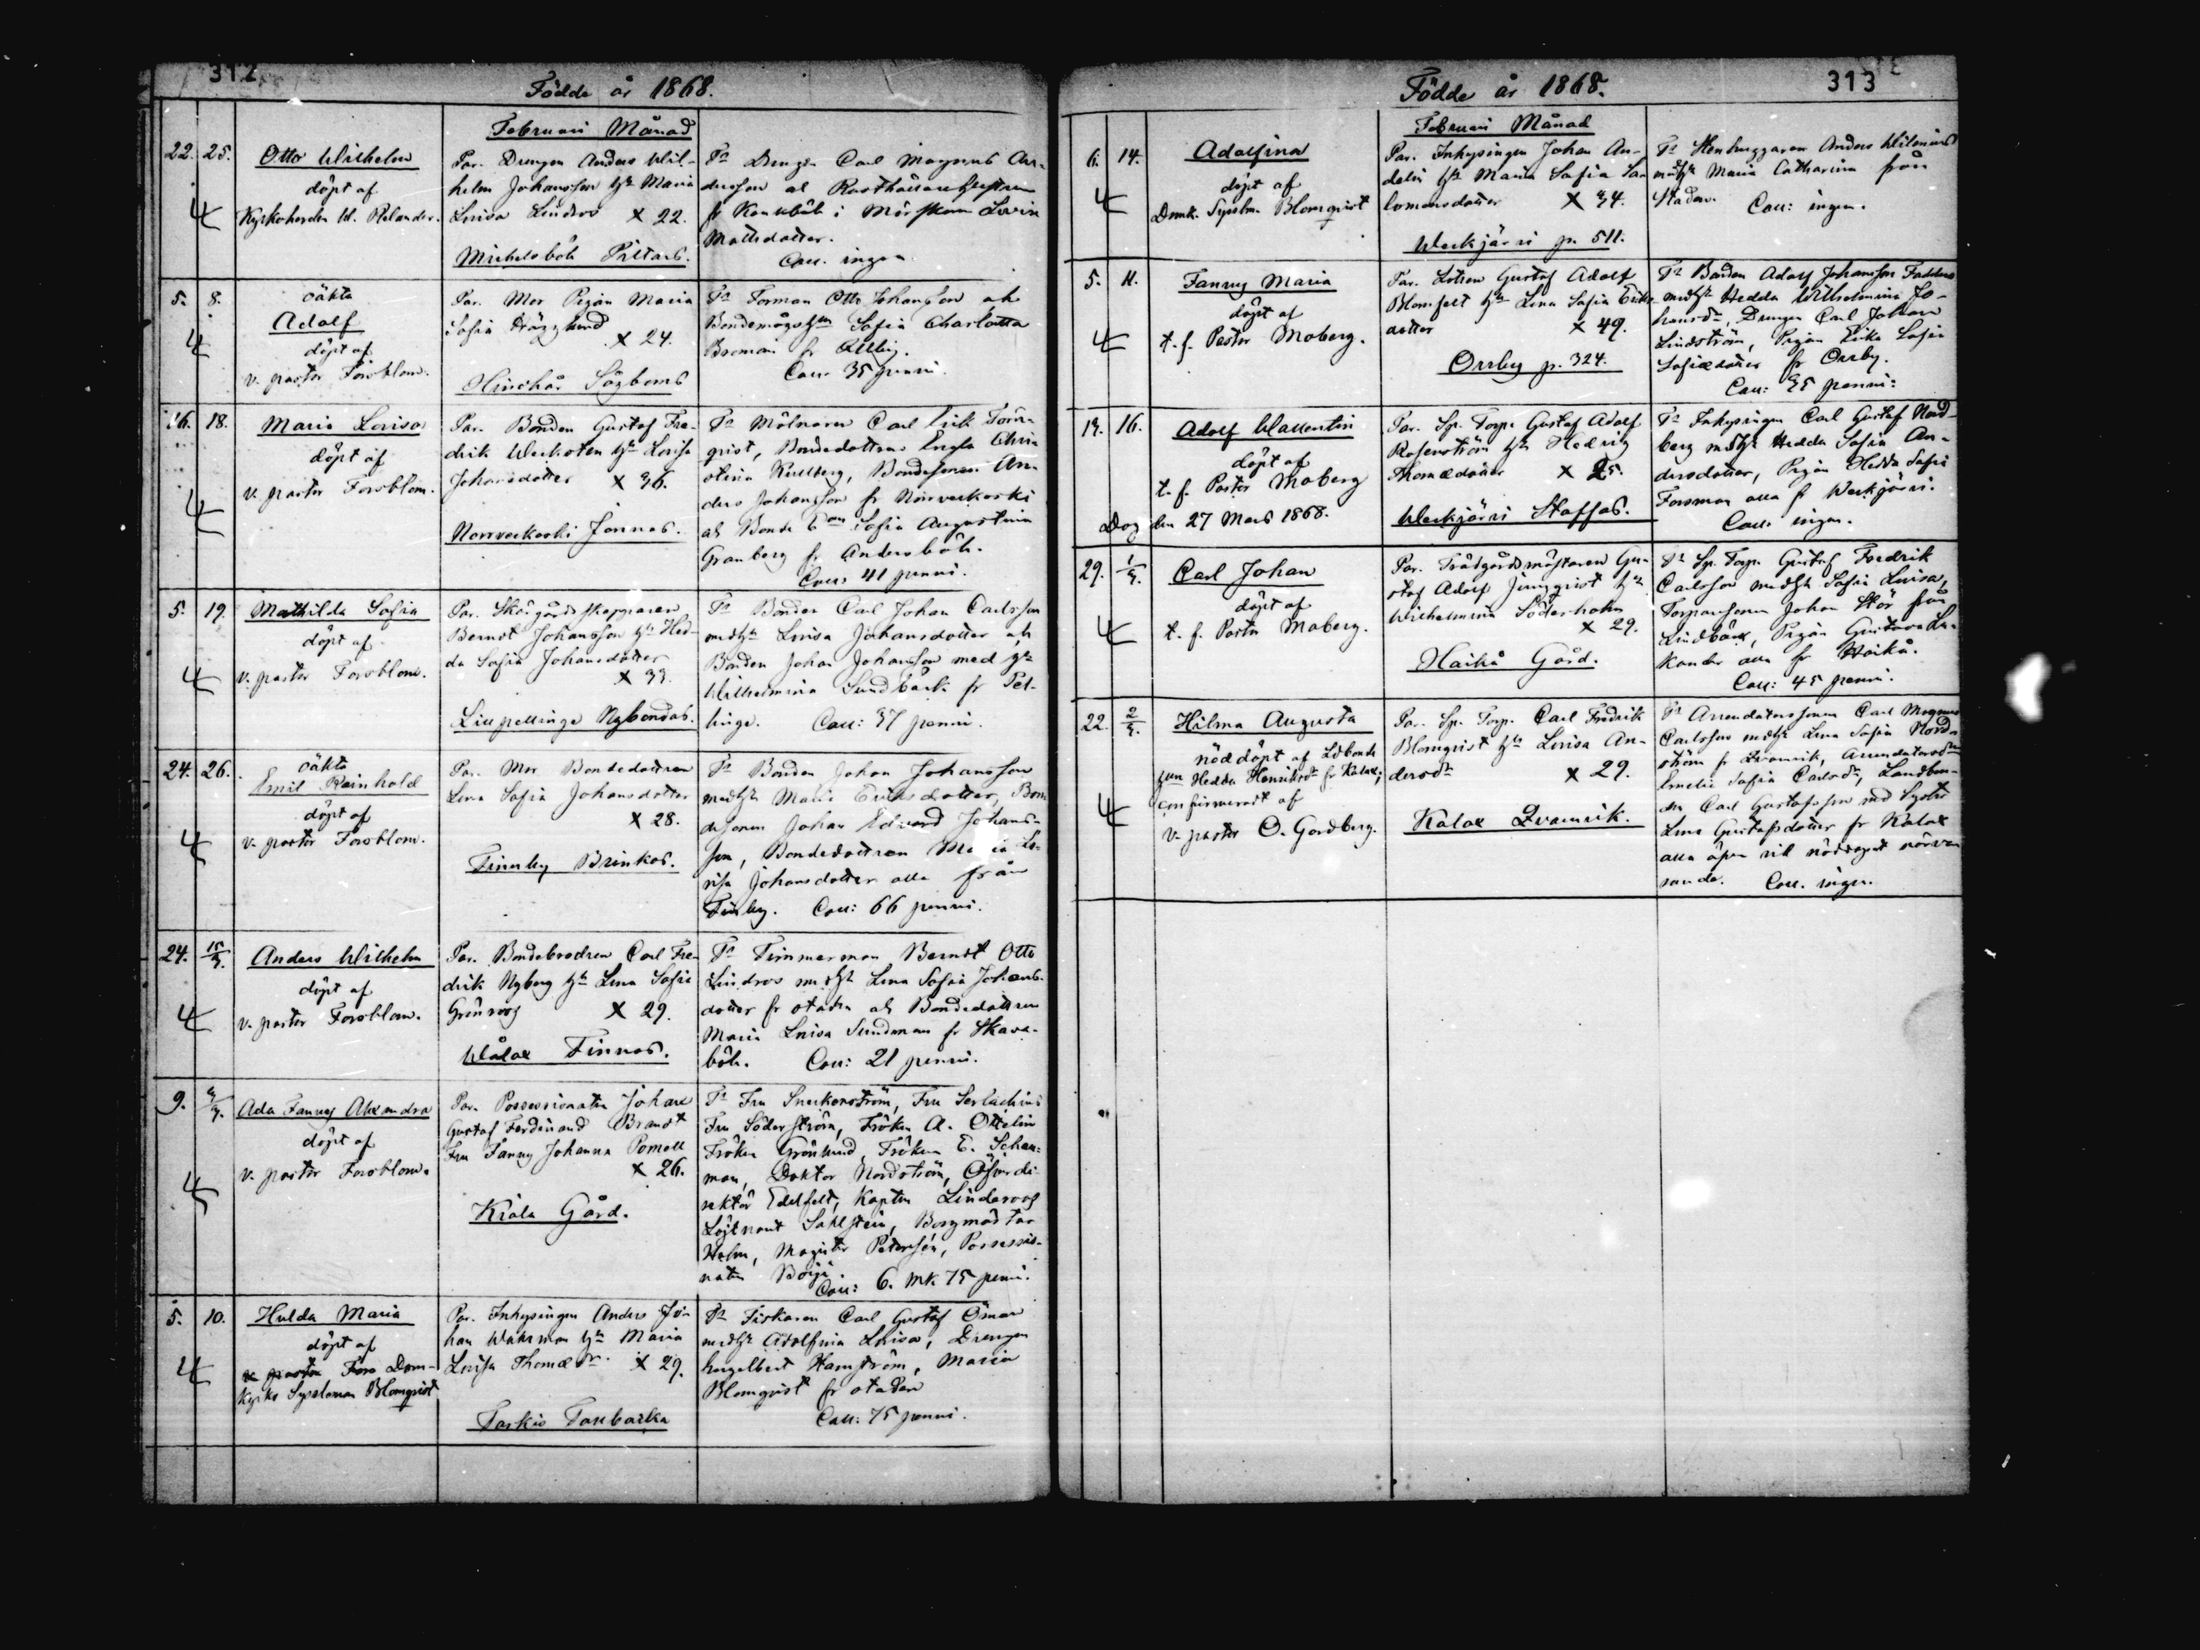 312
Födde år 1868.
Februari Månad
22. 25.
Otto Wilhelm
döpt af
Kyrkoherden W. Relander.
Par. Drengen Anders Wil-
helm Johansson hu Maria
Lovisa Lindros X 22.
Michelsböle
Drengen Carl Magnus An-
dersson
i Mörskom Lovisa
Mattsdotter.
Coll. ingen
5. 8.
oäkta
Adolf
döpt af
v. pastor Forsblom.
Par. Mor Pigan Maria
Sofia Hägglund
X 24.
Forman Otto Johansson
Sofia Charlotta
Broman fr
Coll. 35 penni.
16. 18.
Maria Lovisa
döpt af
v. pastor Forsblom.
Par. Bonden Gustaf Fre-
drik hu Lovisa
Johansdotter X 36.
Norrveckoski Jonnas.
Mölnaren Carl Erik Törn-
qvist, Bondedottren Engla Chri
stina Kullberg, Bondesonen An-
ders Johansson fr Norrveckoski
Sofia Augustina
Granberg fr Andersböle.
Coll: 41 penni.
5. 19.
Mathilda Sofia
döpt af
v. pastor Forsblom.
Par. Skärgårdsskepparen
Berndt Johansson hu Hed-
da Sofia Johansdotter
X 33.
Lillpellinge Nybondas.
Bonden Carl Johan Carlsson
Lovisa Johansdotter
Bonden Johan Johansson med hu
Wilhelmina Sundbäck fr Pel-
linge. Coll: 37 penni.
24. 26.
oäkta
Emil Reinhold
döpt af
v. pastor Forsblom.
Par. Mor Bondedottren
Lena Sofia Johansdotter
X 28.
Finnby Brinkas.
Bonden Johan Johansson
Maria Eriksdotter, Bon
desonen Johan Edvard Johans-
son, Bondedottren Maria Lo-
visa Johansdotter alla från
Finnby. Coll: 66 penni.
24. 15/3.
Anders Wilhelm
döpt af
v. pastor Forsblom.
Par. Bondebrodren Carl Fre-
drik Nyberg hu Lena Sofia
Grönroos X 29.
Wålax Finnas.
Timmerman Berndt Otto
Lindros Lena Sofia Johans-
dotter fr staden Bondedottren
Maria Lovisa Sundman fr Skava-
böle. Coll: 21 penni.
9.
Ada Fanny Alexandra
döpt af
v. pastor Forsblom.
Par. Possessionaten Johan
Gustaf Ferdinand Brandt
Fru Fanny Johanna Pomell
X 26.
Kiala Gård.
Fru Sneckenström, Fru Serlachius
Fru Söderström, Fröken A. Ottelin
Fröken Grönlund, Fröken E. Schau-
man, Doktor Nordström, Öfverdi-
rektör Edelfelt, Kapten Linderoos
Löjtnant Sahlstein, Borgmästar
Holm, Magister Petersen, Possessio-
naten
Coll: 6. mk. 75 penni.
5. 10.
Hulda Maria
döpt af
v. pastor Fors Dom-
kyrko Syssloman Blomqvist
Par. Inhysingen Anders Jo-
han Wahrman hu Maria
Lovisa Thomædr. X 29.
Tarkis
Fiskaren Carl Gustaf Öman
Adolfina Lovisa, Drengen
Engelbert Hamström, Maria
Blomqvist fr staden
Coll: 75 penni.
Födde år 1868.
313
Februari Månad
6. 14.
Adolfina
döpt af
Domk. Sysslm. Blomqvist
Par. Inhysingen Johan An-
delin hu Maria Sofia Sa-
lomonsdotter X 34.
Weckjärvi p. 511.
Stenhuggaren Anders Wilenius
Maria Catharina från
Staden. Coll: ingen.
5. 11.
Fanny Maria
döpt af
t. f. Pastor Moberg.
Par. Lotsen Gustaf Adolf
Blomfelt hu Lena Sofia Eriks-
dotter X 49.
Orrby p. 324.
Bonden Adolf Johansson
Hedda Wilhelmina Jo-
hansdr, Drengen Carl Johan
Lindström, Pigan Erika Sofia
fr Orrby.
Coll: 35 penni:
13. 16.
Adolf Wallentin
döpt af
t. f. Pastor Moberg
Dog den 27 Mars 1868.
Par. Sp. Torp. Gustaf Adolf
Rosenström hu Hedvig
Thomædotter X 25.
Weckjärvi Staffas.
Inhysingen Carl Gustaf Nord-
berg Hedda Sofia An-
dersdotter, Pigan Hedda Sofia
Forsman alla fr Weckjärvi.
Coll: ingen.
29. 1/3.
Carl Johan
döpt af
t. f. Pastor Moberg.
Par. Trädgårdsmästaren Gu-
staf Adolf Ljungqvist hu
Wilhelmina Söderholm
X 29.
Haikå Gård.
Sp. Torp. Gustaf Fredrik
Carlsson Sofia Lovisa,
Torparsonen Johan Stör från
Lindbäck, Pigan Gustava
alla fr Haikå.
Coll: 45 penni.
22. 2/3.
Hilma Augusta
nöddöpt af
Hedda Henriksdr fr Kalax;
confirmeradt af
v. pastor O. Gordberg.
Par. Sp. Torp. Carl Fredrik
Blomqvist hu Lovisa An-
dersdr
X 29.
Kalax
Arrendatorssonen Carl Magnus
Carlsson Lena Sofia Nord-
ström fr
Emelie Sofia Carlsdr, Landbon-
den Carl Gustafsson med hustr
Lena Gustafsdotter fr Kalax
alla äfven vid nöddopet närva
rande. Coll. ingen.